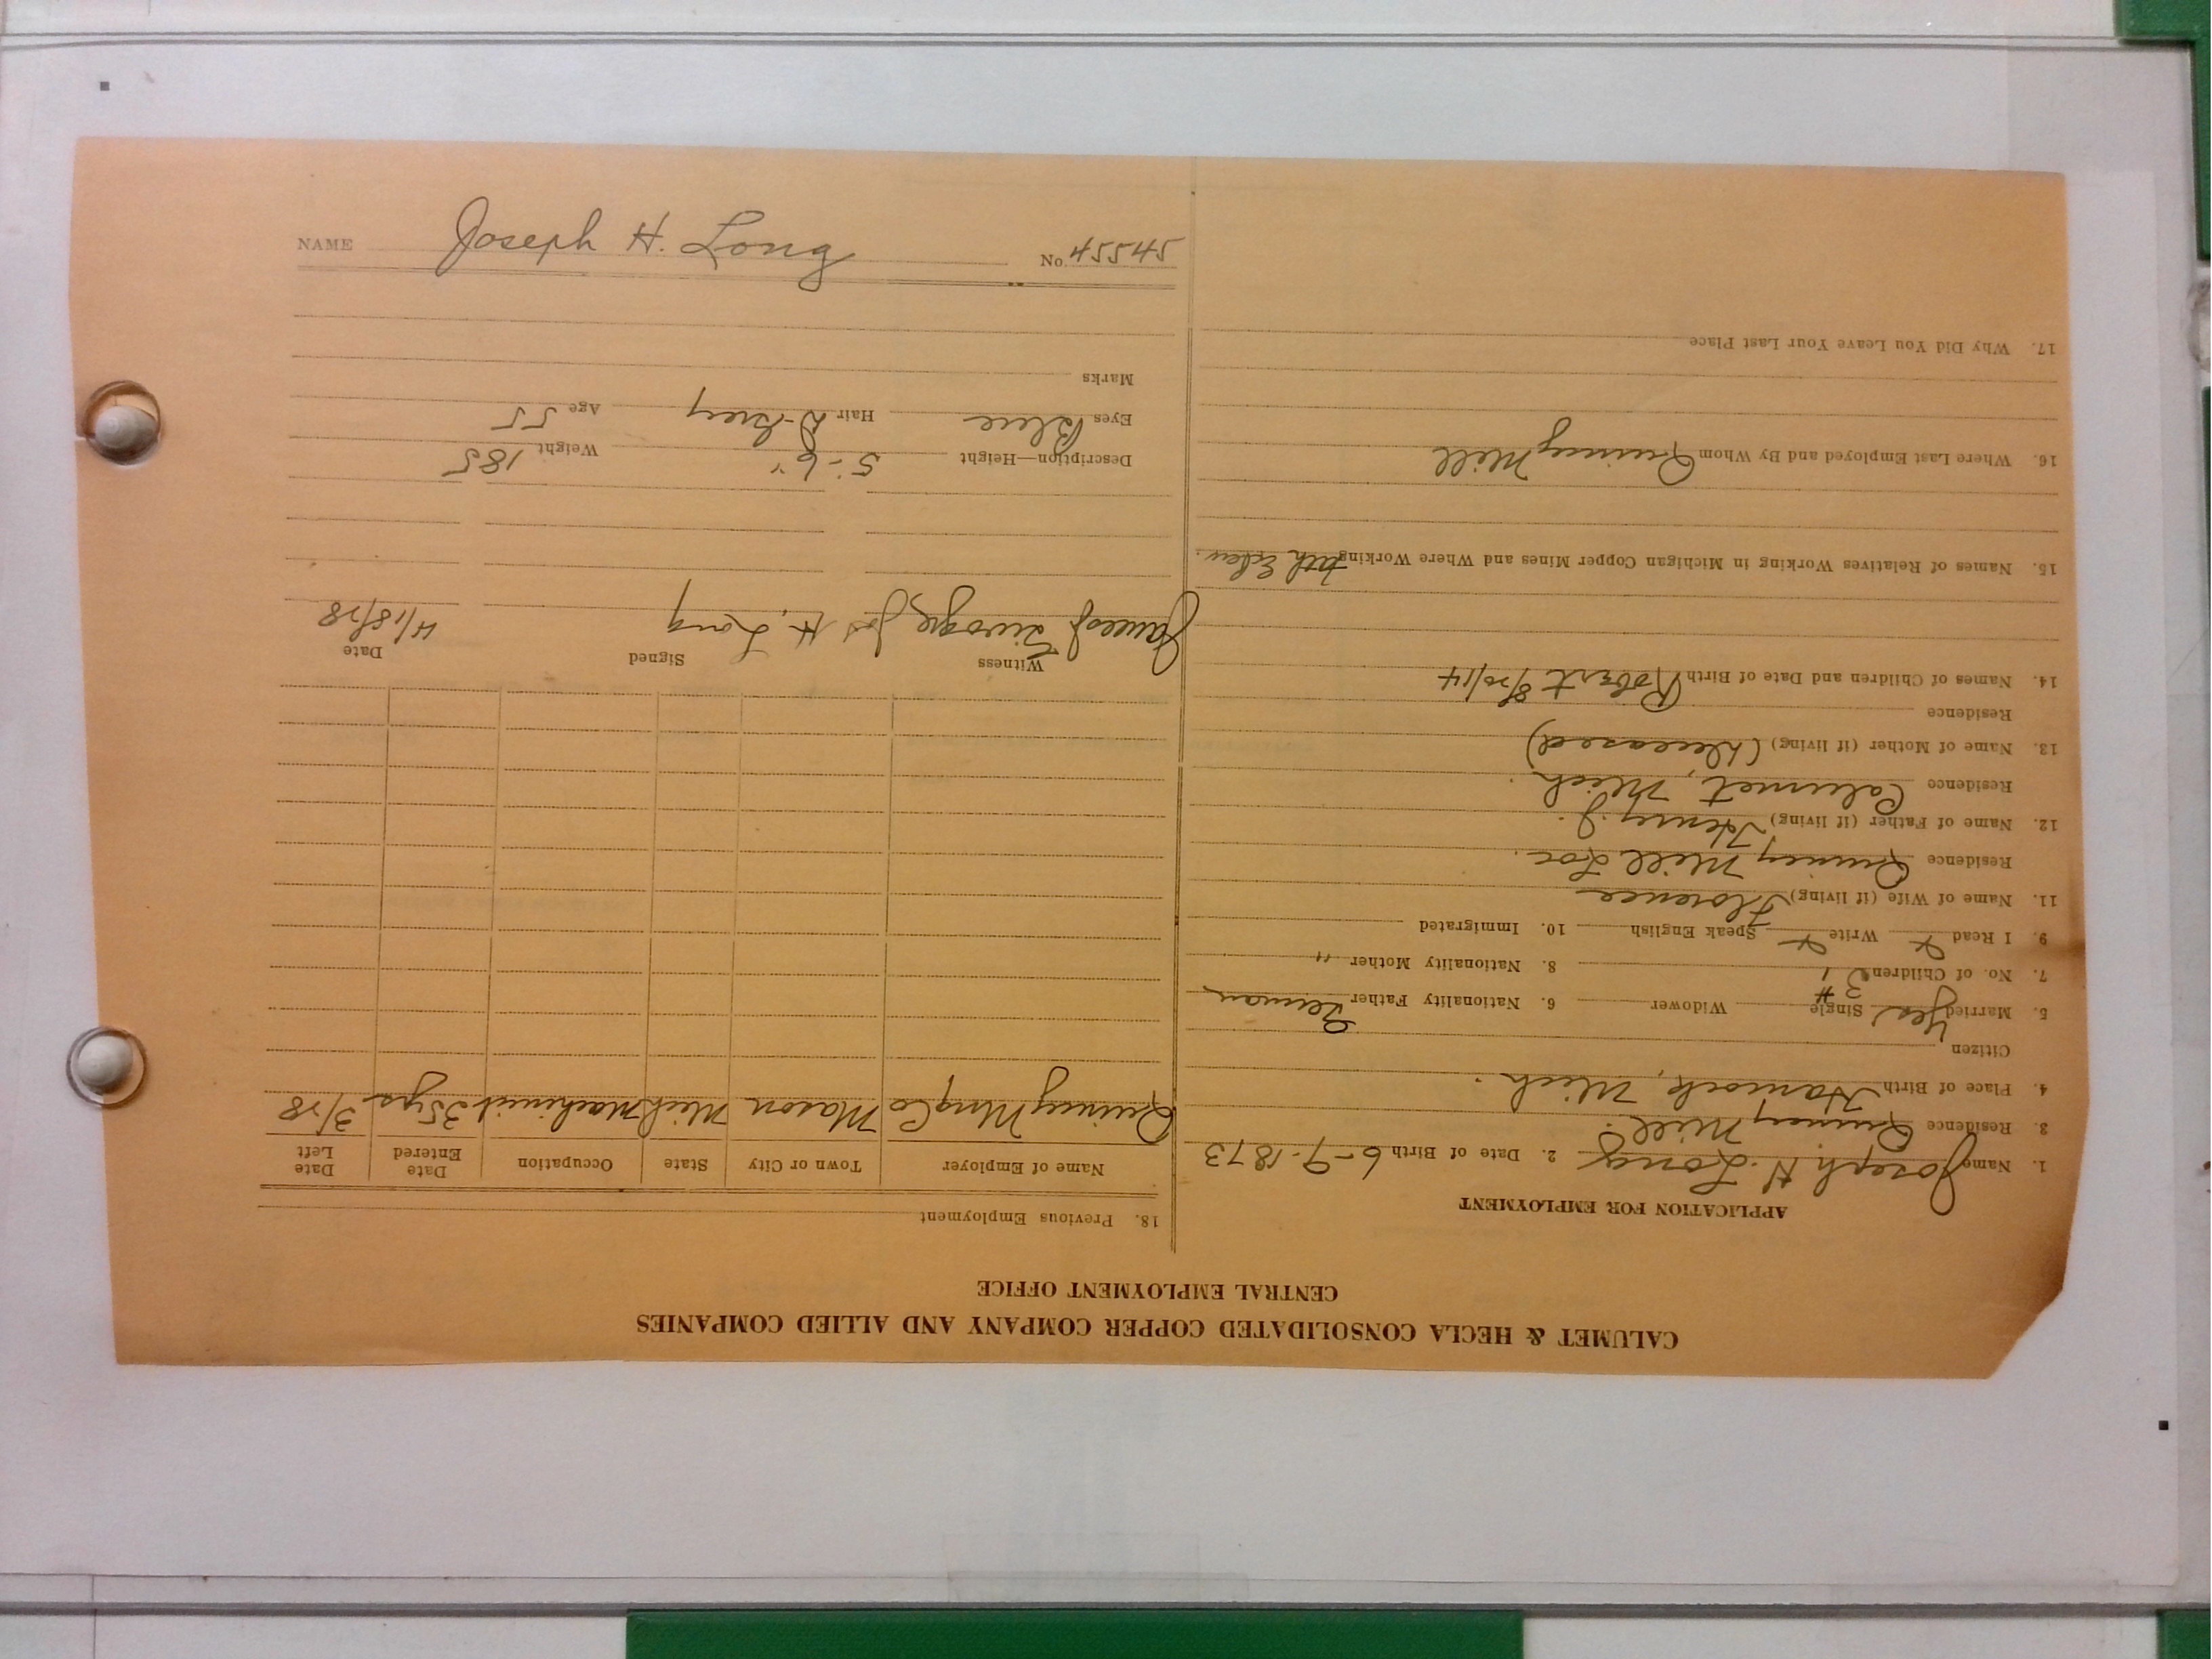 NAME Joseph H. Long No. 54554
CALUMET & HECLA CONSOLIDATED COPPER COMPANY AND ALLIED COMPANIES
CENTRAL EMPLOYMENT OFFICE
APPLICATION FOR EMPLOYMENT
1. Name Joseph H. Long 2. Date of Birth 6-9-1873
3. Residence Quincy Mill.
4. Place of Birth Hancock, Mich.
Citizen
5. Married Yes Single # 3 Widower 6. Nationality Father German
7. No. of Children 1 8. Nationality Mother "
9. I Read x Write x Speak English 10. Immigrated
11. Name of Wife (if living) Florence
Residence Quincy Mill Loc.
12. Name of Father (if living) Henry J.
Residence Calumet, Mich.
13. Name of Mother (if living) (Deceased)
Residence
14. Names of Children and Date of Birth Robert 8/20/14
15. Names of Relatives Working in Michigan Copper Mines and Where Working
16. Where Last Employed and By Whom Quincy Mill
17. Why Did You Leave Your Last Place
18. Previous Employment
Name of Employer Town or City State Occupation Date Entered Date Left
Quincy Mng Co Mason Mich Machinist 35 yrs 3/28
Witness Signed Date
Jos H. Long 4/18/28
Description—Height 5-6" Weight 185
Eyes Blue Hair D-Grey Age 55
Marks